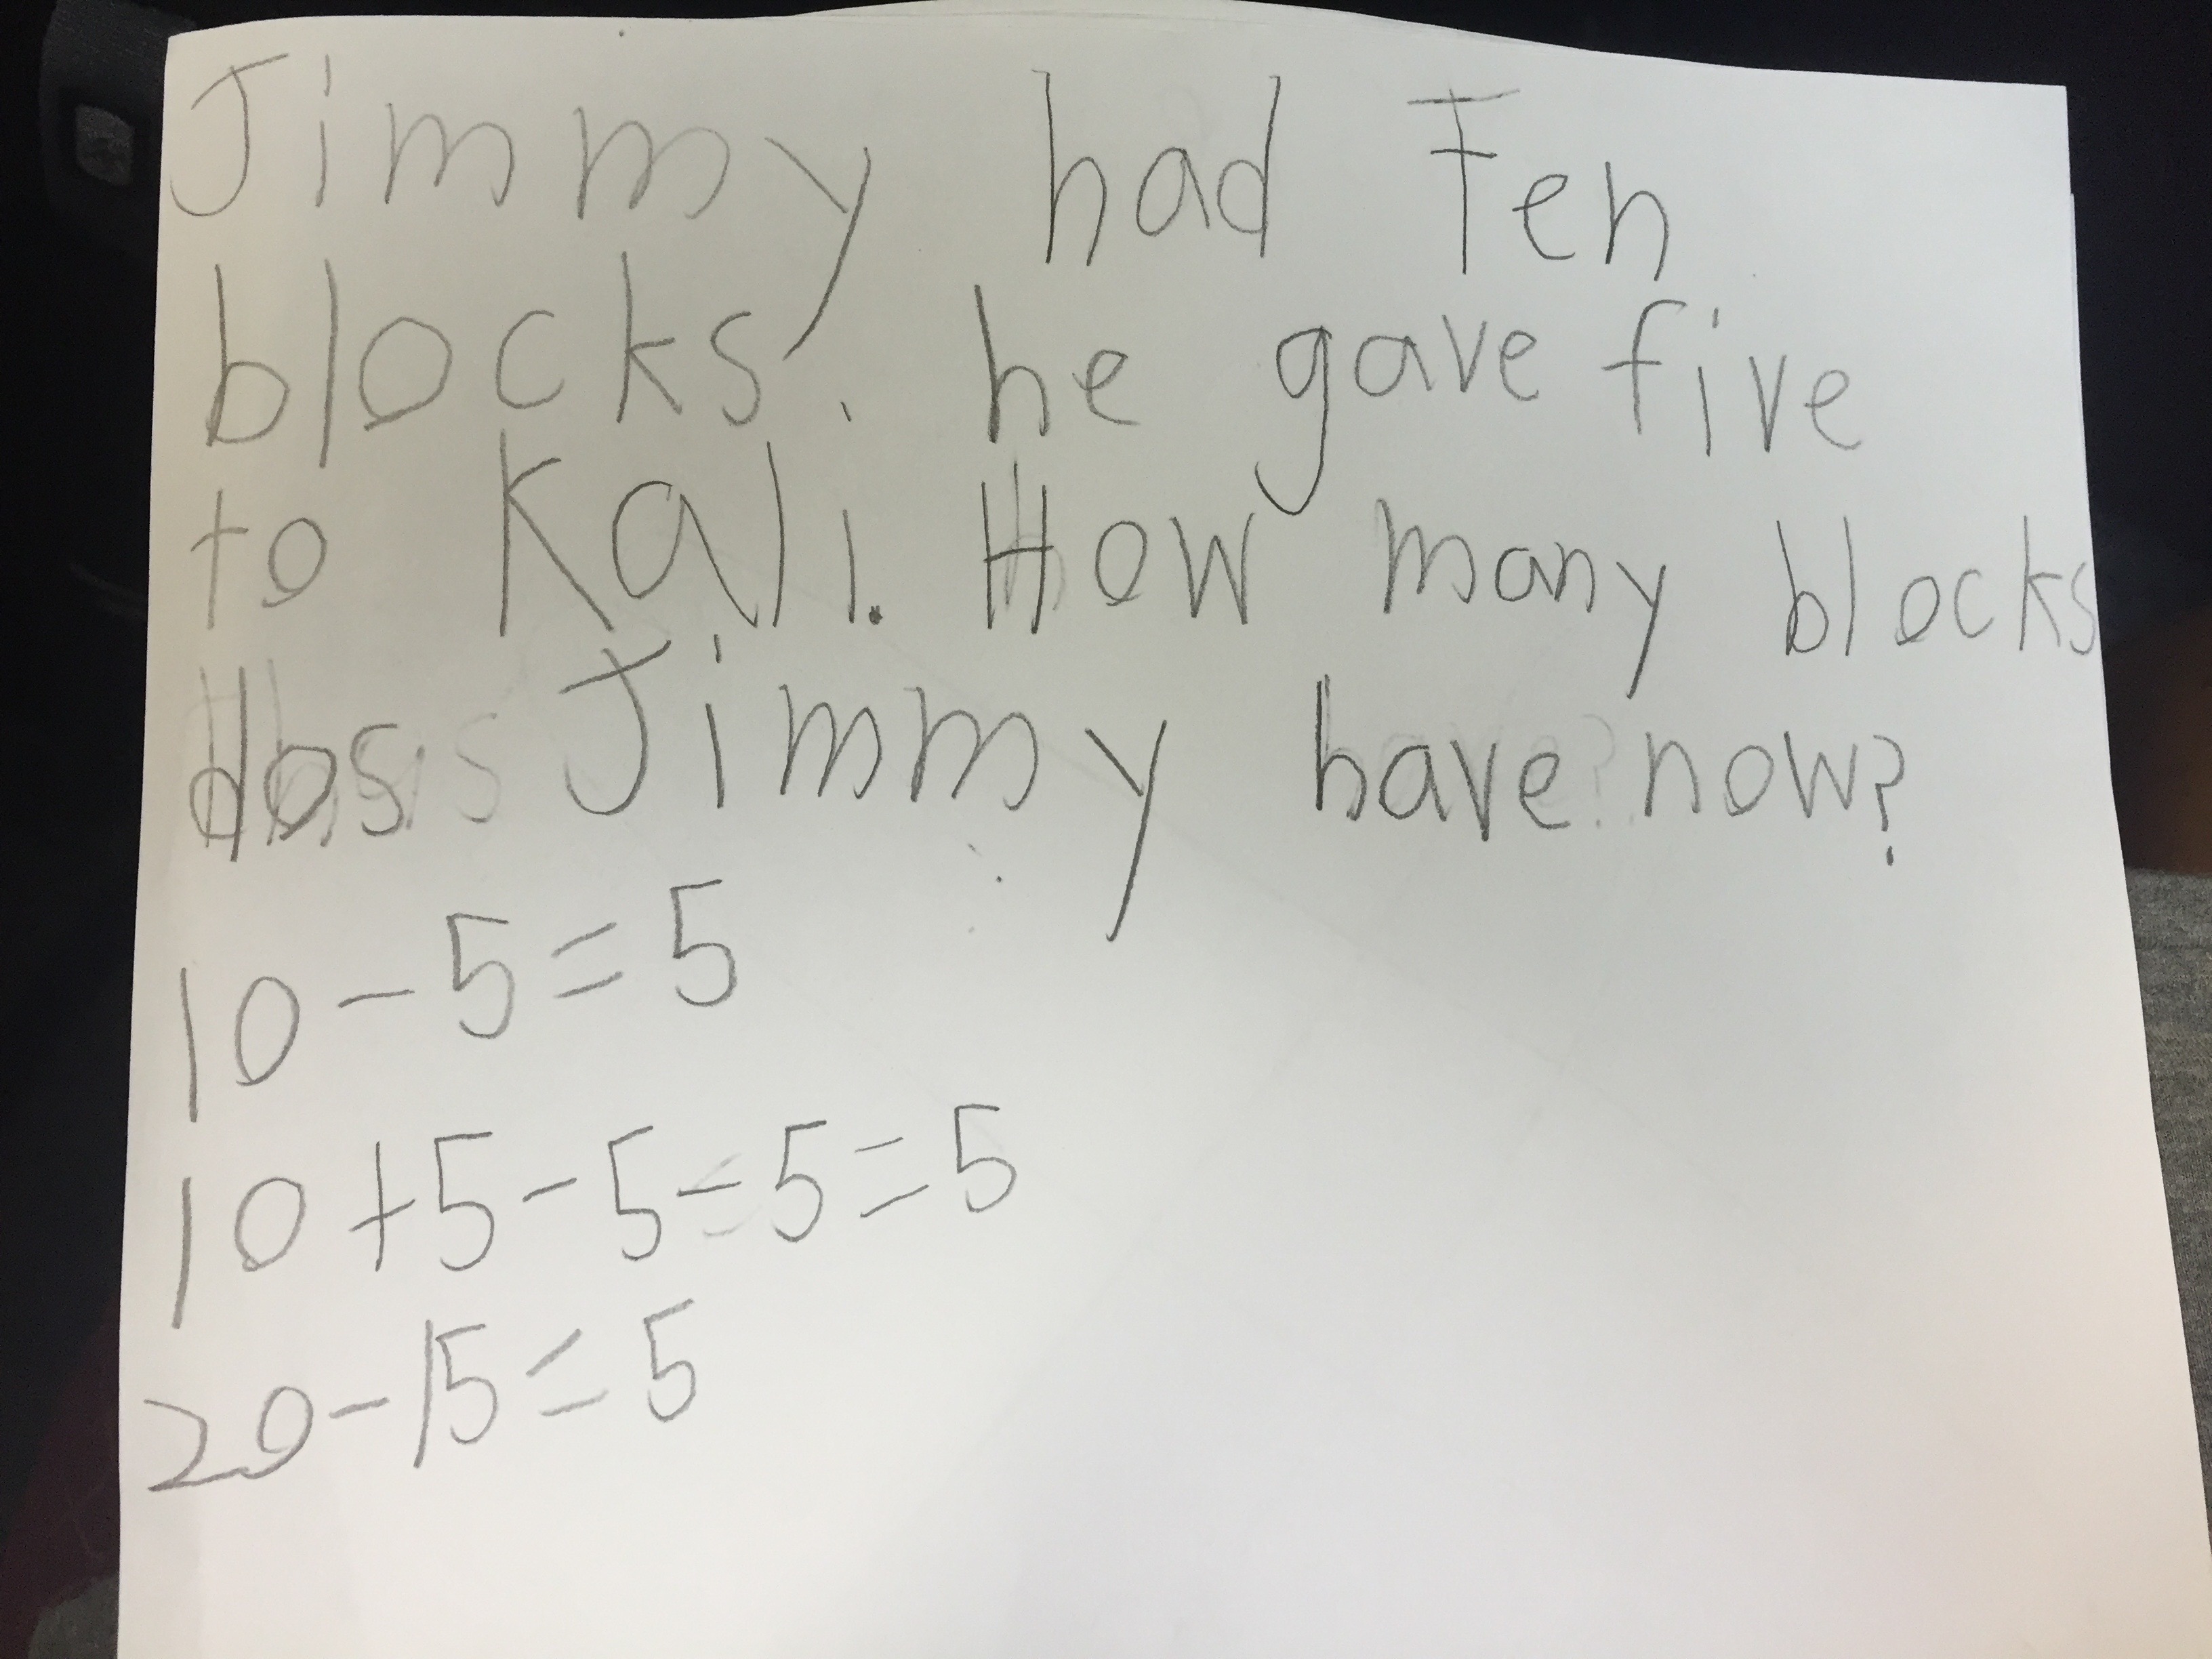 Jimmy had Ten
blocks. he gave five
to Kali. How many blocks
dos Jimmy have now?
10-5=5
10+5-5-5=5
20-15=5